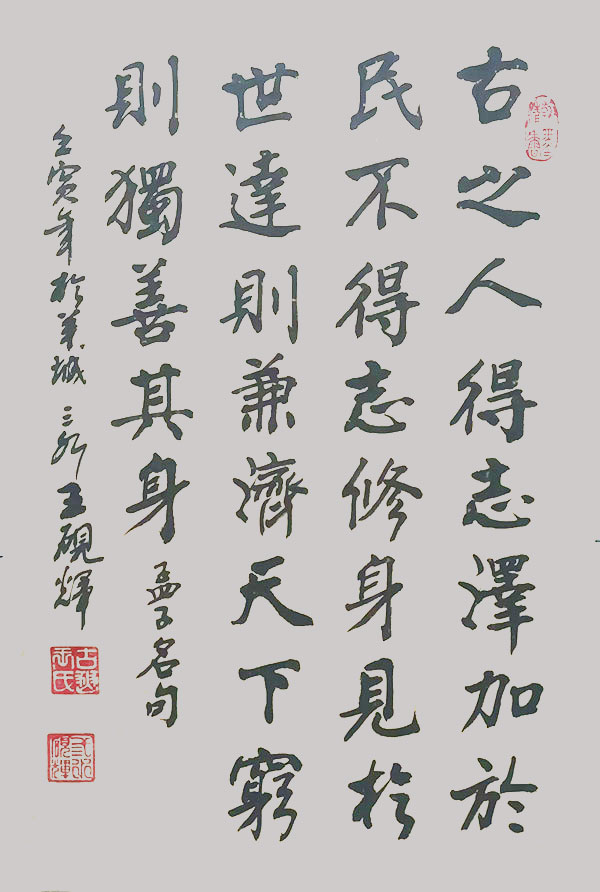 古之人得志澤加於
民不得志修身見於
世達則兼濟天下窮
則獨善其身
孟子名句
壬寅年於羊城
王硯輝